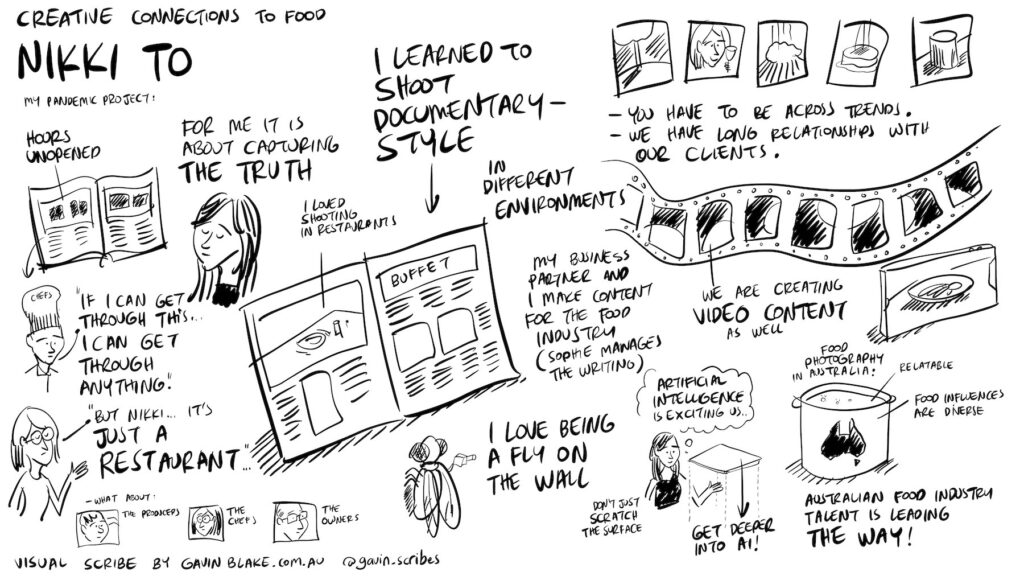 CREATIVE CONNECTIONS TO FOOD
NIKKI TO
MY PANDEMIC PROJECT:
HOURS
UNOPENED
FOR ME IT IS
ABOUT CAPTURING
THE TRUTH
CHEFS
"IF I CAN GET
THROUGH THIS...
I CAN GET
THROUGH
ANYTHING."
"BUT NIKKI... IT'S
JUST A
RESTAURANT"...
- WHAT ABOUT:
THE PRODUCERS
THE
CHEFS
THE
OWNERS
I LEARNED TO
SHOOT
DOCUMENTARY-
STYLE
I LOVED
SHOOTING
IN RESTAURANTS
BUFFET
IN
DIFFERENT
ENVIRONMENTS
MY BUSINESS
PARTNER AND
I MAKE CONTENT
FOR THE FOOD
INDUSTRY
(SOPHIE MANAGES
THE WRITING)
I LOVE BEING
A FLY ON
THE WALL
- YOU HAVE TO BE ACROSS TRENDS.
- WE HAVE LONG RELATIONSHIPS WITH
OUR CLIENTS.
WE ARE CREATING
VIDEO CONTENT
AS WELL
ARTIFICIAL
INTELLIGENCE
IS EXCITING US..
DON'T JUST
SCRATCH
THE SURFACE
GET DEEPER
INTO AI!
FOOD
PHOTOGRAPHY
IN AUSTRALIA:
RELATABLE
FOOD INFLUENCES
ARE DIVERSE
AUSTRALIAN FOOD INDUSTRY
TALENT IS LEADING
THE WAY!
VISUAL SCRIBE BY GAVIN BLAKE.COM.AU @gavin_scribes